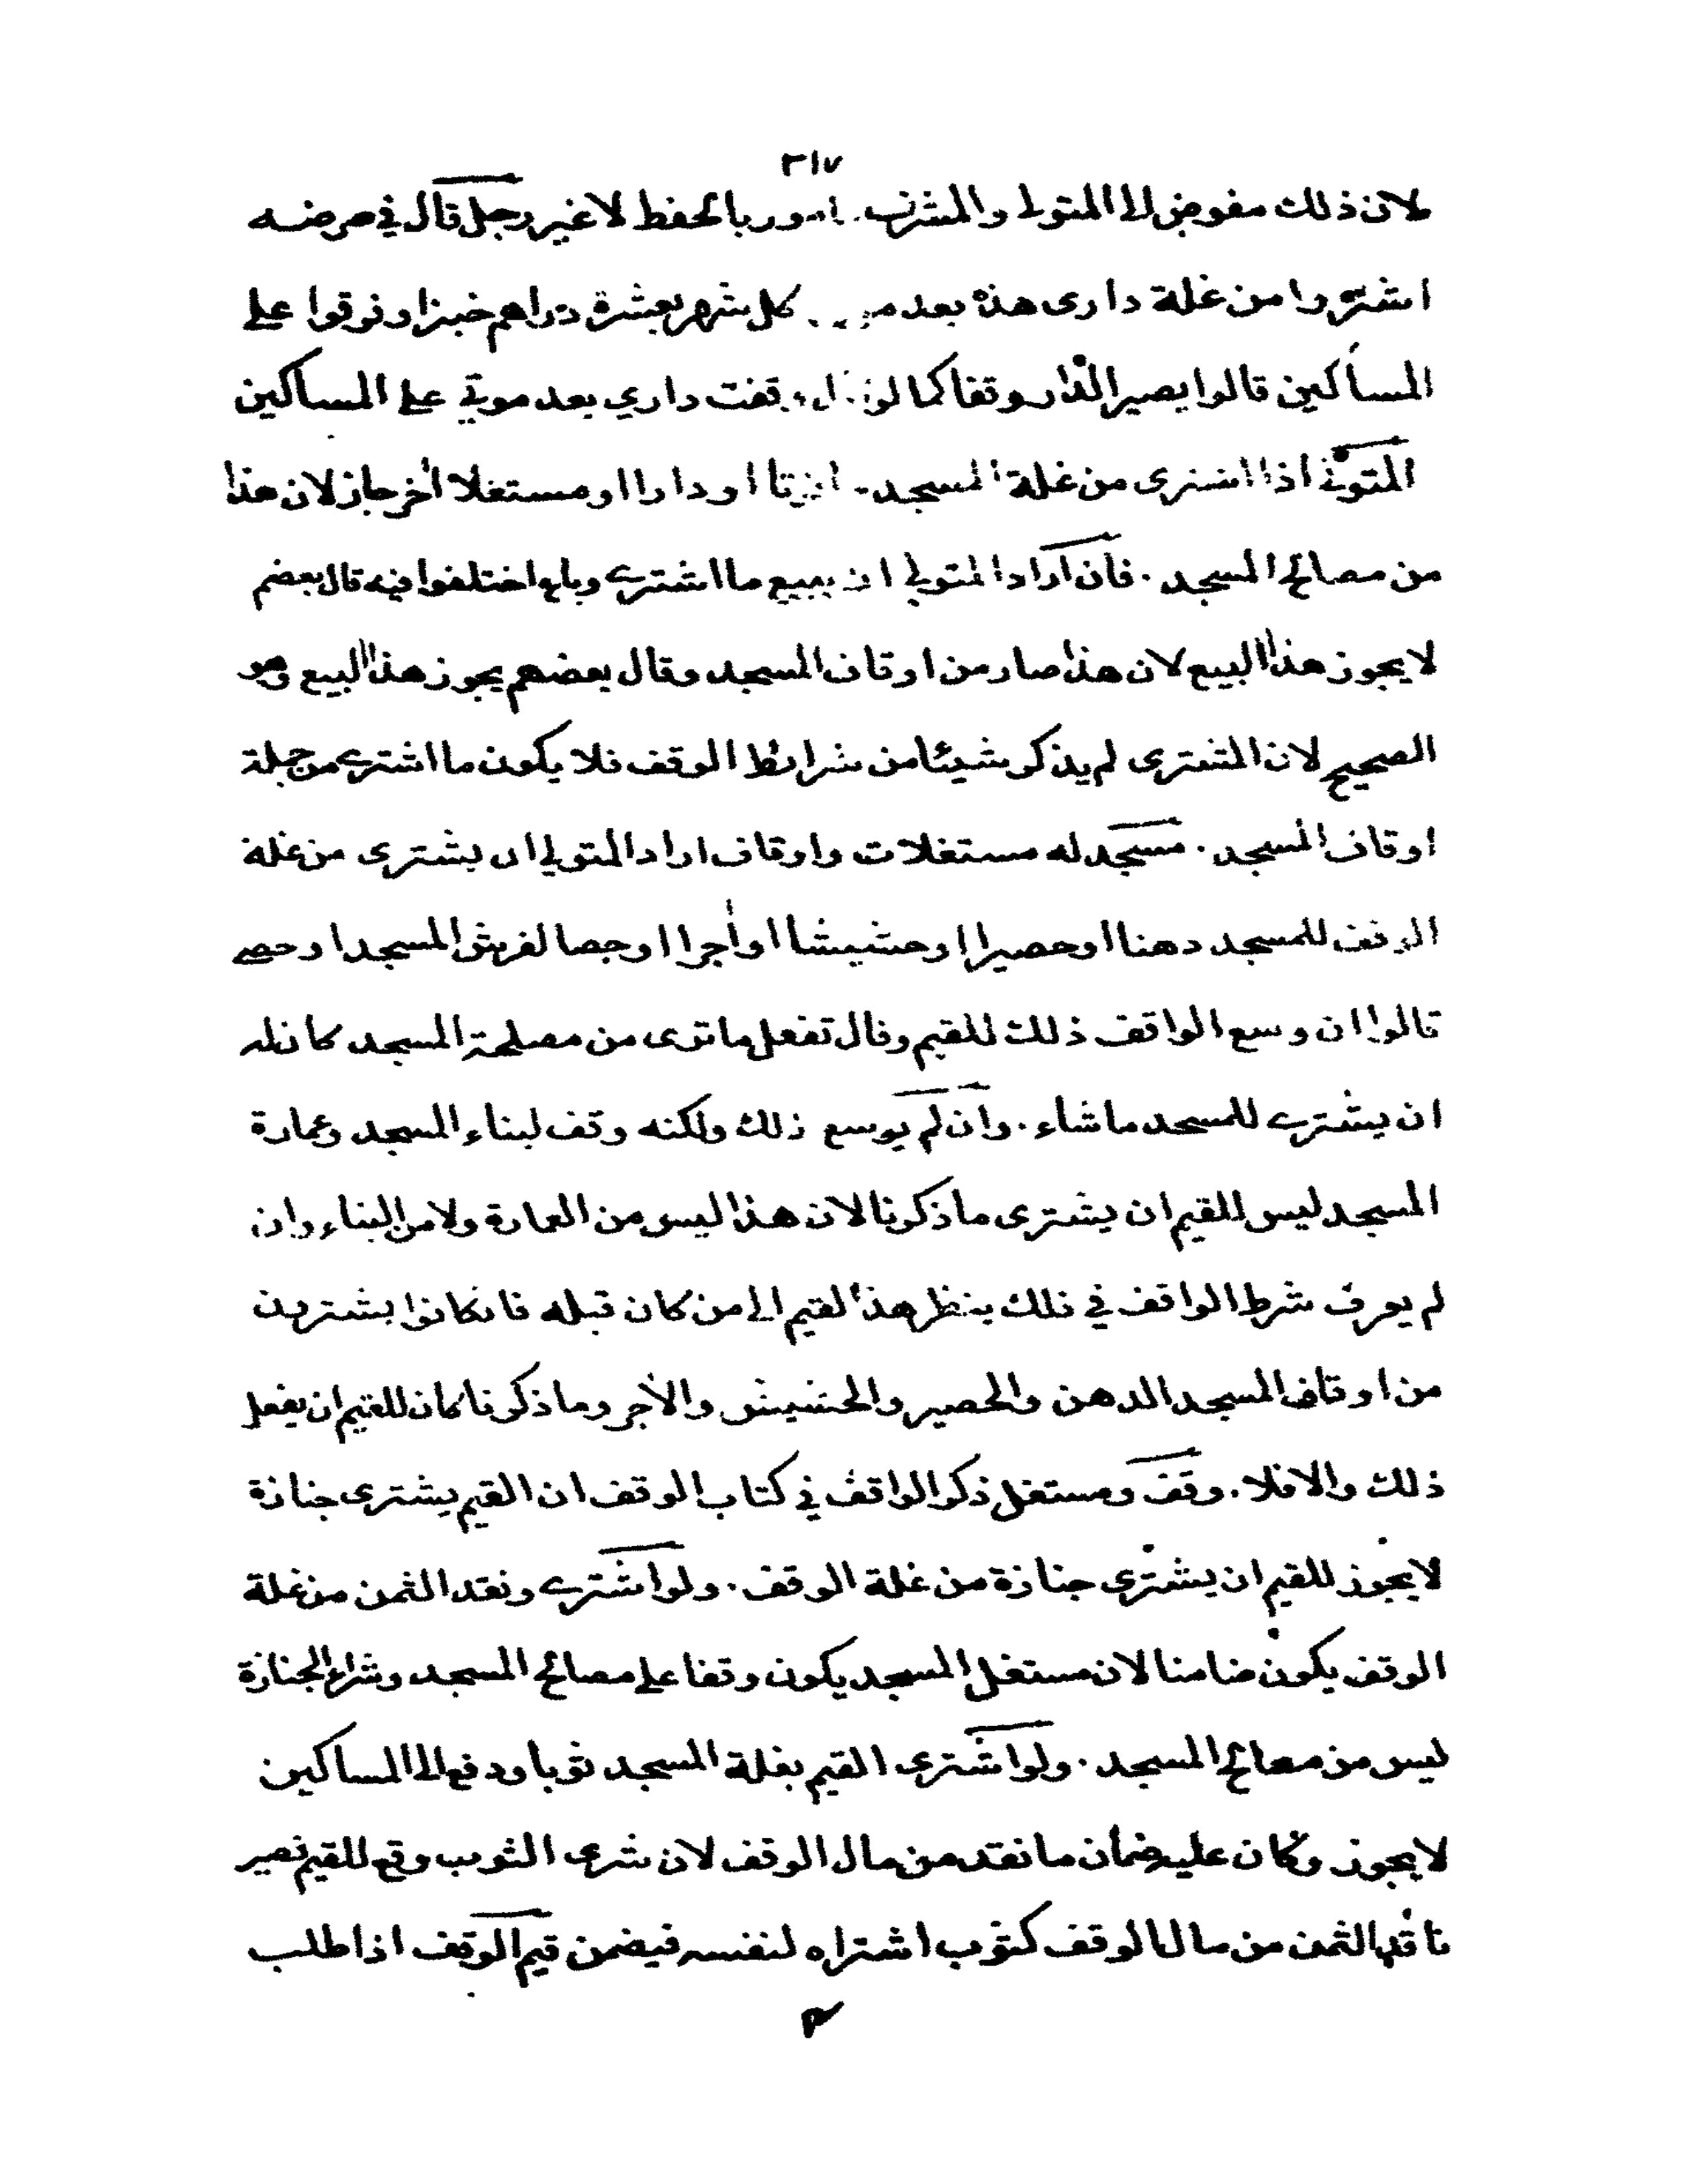 ٣١٧
لان ذلك مفوض الى المتولى والمشرف بالحفظ لا غير رجل قال في مرضه
اشتروا من غلة دارى هذه بعد كل شهر بعشرة دراهم خبزا وفرقوا على
المساكين قالوا يصير الدار وقفا كما لو وقفت داري بعد موتي على المساكين
المتولي اذا اشترى من غلة المسجد او دارا او مستغلا اخر جاز لان هذا
من مصالح المسجد . فان اراد المتولي ان يبيع ما اشترى وباع اختلفوا فيه قال بعضهم
لا يجوز هذا البيع لان هذا صار من اوقاف المسجد وقال بعضهم يجوز هذا البيع وهو
الصحيح لان المشترى لم يذكر شيئا من شرائط الوقف فلا يكون ما اشترى من جملة
اوقاف المسجد . مسجد له مستغلات واوقاف اراد المتولي ان يشترى من غلة
الوقف للمسجد دهنا او حصيرا او حشيشا او اجرا او جصا لفرش المسجد او حصى
قالوا ان وسع الواقف ذلك للقيم وقال تفعل ما ترى من مصلحة المسجد كان له
ان يشترى للمسجد ما شاء . وان لم يوسع ذلك ولكنه وقف لبناء المسجد وعمارة
المسجد ليس للقيم ان يشترى ما ذكرنا لان هذا ليس من العمارة ولا من البناء وان
لم يعرف شرط الواقف في ذلك ينظر هذا القيم الى من كان قبله فان كانوا يشترون
من اوقاف المسجد الدهن والحصير والحشيش والاجر وما ذكرنا كان للقيم ان يفعل
ذلك والا فلا . وقف ومستغل ذكر الواقف في كتاب الوقف ان القيم يشترى جنازة
لا يجوز للقيم ان يشترى جنازة من غلة الوقف . ولو اشترى ونقد الثمن من غلة
الوقف يكون ضامنا لان مستغل المسجد يكون وقفا على مصالح المسجد وشراء الجنازة
ليس من مصالح المسجد . ولو اشترى القيم بغلة المسجد ثوبا ودفع الى المساكين
لا يجوز وكان عليه ضمان ما نقد من مال الوقف لان شرى الثوب وقع للقيم فيصير
ناقد الثمن من مال الوقف كثوب اشتراه لنفسه فيضمن قيم الوقف اذا طلب